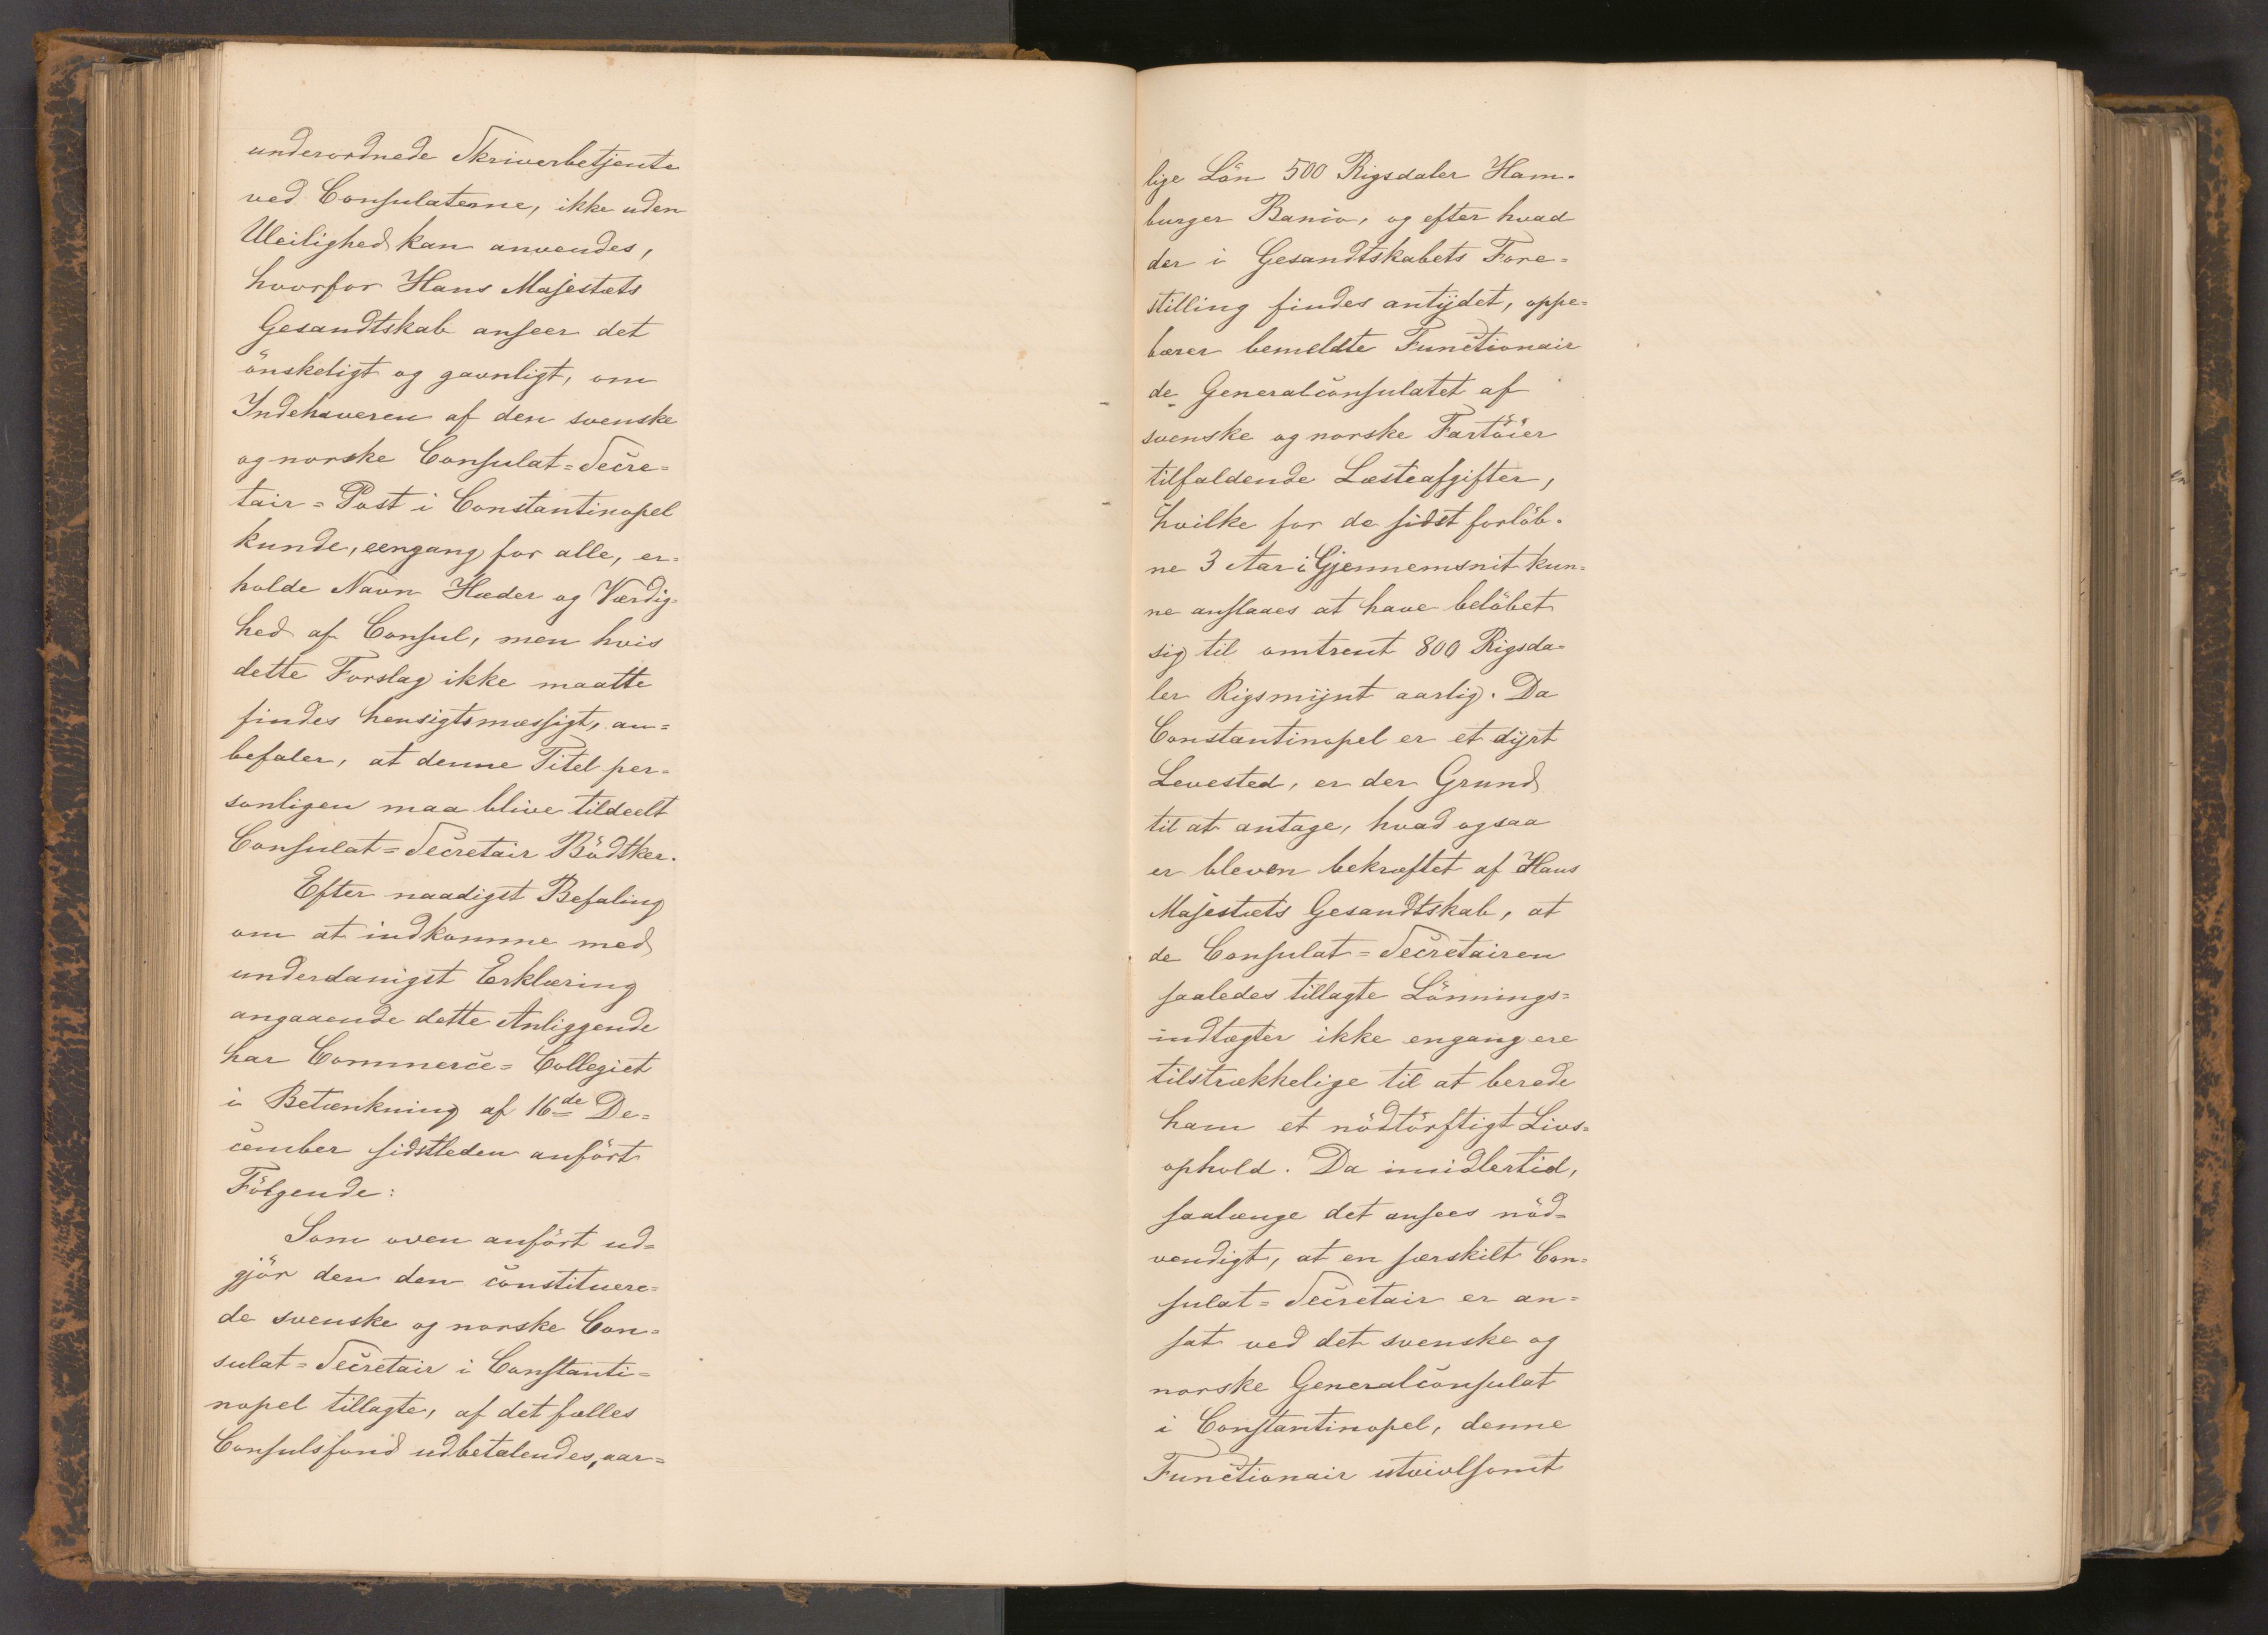 underordnede Skriverbetjente
ved Consulaterne, ikke uden
Uleilighed kan anvendes,
hvorfor Hans Majestæts
Gesandtskab anseer det
önskeligt og gavnligt, om
Indehaveren af den svenske
og norske Consulat=Secre=
tair=Post i Constantinopel
kunde, eengang for alle, er=
holde Navn Hæder og Værdig=
hed af Consul, men hvis
dette Forslag ikke maatte
findes hensigtsmæssigt, an=
befaler, at denne Titel per=
sonligen maa blive tildeelt
Consulat=Secretair Bödtker.
Efter naadigst Befaling
om at indkomme med
underdanigst Erklæring
angaaende dette Anliggende
har Commerce=Collegiet
i Betænkning af 16de De=
cember sidstleden anfört
Fölgende:
Som oven anfört ud=
gjör den den constituere=
de svenske og norske Con=
sulat=Secretair i Constanti=
nopel tillagte, af det fælles
Consulsfond udbetalendes, aar=
lige Lön 500 Rigsdaler Ham=
burger Banco, og efter hvad
der i Gesandtskabets Fore=
stilling findes antijdet, oppe=
bærer bemeldte Functionair
de Generalconsulatet af
svenske og norske Fartöier
tilfaldende Læsteafgifter,
hvilke for de sidst forlöb=
ne 3 Aar i Gjennemsnit kun=
ne anslaaes at have belöbet
sig til omtrent 800 Rigsda=
ler Rigsmijnt aarlig. Da
Constantinopel er et dijrt
Levested, er der Grund
til at antage, hvad ogsaa
er bleven bekræftet af Hans
Majestæts Gesandtskab, at
de Consulat=Secretairen
saaledes tillagte Lönnings=
indtægter ikke engang ere
tilstrækkelige til at berede
ham et nödtörftigt Livs=
ophold. Da imidlertid,
saalænge det ansees nöd=
vendigt, at en særskilt Con=
sulat=Secretair er an=
sat ved det svenske og
norske Generalconsulat
i Constantinopel, denne
Functionair utvivlsomt